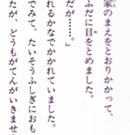 家のまえをとおりかかって、
ふだに目をとめました。
だが……。」
れるかなでかかれていました。
でみて、たいそうふしぎにおも
たが、どうもがてんがいきませ